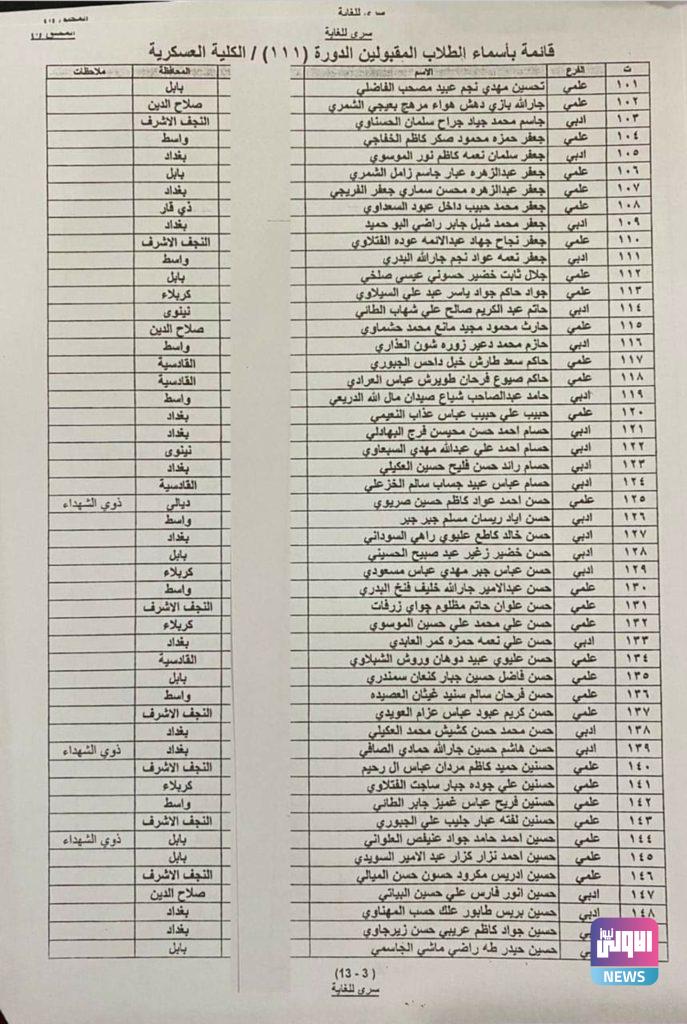 سري للغاية
سري للغاية
قائمة بأسماء الطلاب المقبولين الدورة (١١١) / الكلية العسكرية
ت الفرع الاسم المحافظة ملاحظات
١٠١ علمي تحسين مهدي نجم عبيد مصحب الفاضلي بابل
١٠٢ علمي جارالله بازي دهش هواء مرهج بعيجي الشمري صلاح الدين
١٠٣ ادبي جاسم محمد جياد جراح سلمان الحسناوي النجف الاشرف
١٠٤ علمي جعفر حمزه محمود صكر كاظم الخفاجي واسط
١٠٥ ادبي جعفر سلمان نعمه كاظم نور الموسوي بغداد
١٠٦ علمي جعفر عبدالزهره عبار جاسم زامل الشمري بابل
١٠٧ علمي جعفر عبدالزهره محسن سماري جعفر الفريجي بغداد
١٠٨ علمي جعفر محمد حبيب داخل عبود السعداوي ذي قار
١٠٩ ادبي جعفر محمد شبل جابر راضي البو حميد بغداد
١١٠ علمي جعفر نجاح جهاد عبدالائمه عوده الفتلاوي النجف الاشرف
١١١ ادبي جعفر نعمه عواد نجم جارالله البدري واسط
١١٢ علمي جلال ثابت خضير حسوني عيسى صلخي بابل
١١٣ علمي جواد حاكم جواد ياسر عبد علي السيلاوي كربلاء
١١٤ ادبي حاتم عبد الكريم صالح علي شهاب الطائي نينوى
١١٥ علمي حارث محمود مجيد مانع محمد حشماوي صلاح الدين
١١٦ ادبي حازم محمد دعير زوره شون العذاري واسط
١١٧ علمي حاكم سعد طارش خبل داحس الجبوري القادسية
١١٨ علمي حاكم صيوع فرحان طويرش عباس العرادي القادسية
١١٩ ادبي حامد عبدالصاحب شياع صيدان مال الله الدريعي واسط
١٢٠ علمي حبيب علي حبيب عباس عذاب النعيمي بغداد
١٢١ ادبي حسام احمد حسن محيسن فرج البهادلي بغداد
١٢٢ ادبي حسام احمد علي عبدالله مهدي السبعاوي نينوى
١٢٣ ادبي حسام رائد حسن فليح حسين العكيلي بغداد
١٢٤ ادبي حسام عباس عبيد جساب سالم الخزعلي القادسية
١٢٥ علمي حسن احمد عواد كاظم حسين صريوي ديالى ذوي الشهداء
١٢٦ ادبي حسن اياد ريسان مسلم جبر جبر واسط
١٢٧ ادبي حسن خالد كاطع عليوي راهي السوداني بغداد
١٢٨ ادبي حسن خضير زغير عبد صبيح الحسيني بابل
١٢٩ ادبي حسن عباس جبر مهدي عباس مسعودي كربلاء
١٣٠ علمي حسن عبدالامير جارالله خليف فنخ البدري واسط
١٣١ علمي حسن علوان حاتم مظلوم جواي زرفات النجف الاشرف
١٣٢ علمي حسن علي محمد علي حسين الموسوي كربلاء
١٣٣ ادبي حسن علي نعمه حمزه كمر العابدي بغداد
١٣٤ علمي حسن عليوي عبيد دوهان وروش الشبلاوي القادسية
١٣٥ علمي حسن فاضل حسين جبار كنعان سمندري بابل
١٣٦ علمي حسن فرحان سالم سنيد غيثان العصيده واسط
١٣٧ علمي حسن كريم عبود عباس عزام العويدي النجف الاشرف
١٣٨ ادبي حسن محمد حسن كشيش محمد العكيلي بغداد
١٣٩ ادبي حسن هاشم حسين جارالله حمادي الصافي بغداد ذوي الشهداء
١٤٠ علمي حسنين حميد كاظم مردان عباس ال رحيم النجف الاشرف
١٤١ علمي حسنين علي جوده جبار ساجت الفتلاوي كربلاء
١٤٢ علمي حسنين فريح عباس غميز جابر الطائي واسط
١٤٣ علمي حسنين لفته عبار جليب علي الجبوري النجف الاشرف
١٤٤ علمي حسين احمد حامد جواد عنيفص العلواني بابل ذوي الشهداء
١٤٥ علمي حسين احمد نزار كزار عبد الامير السويدي بابل
١٤٦ علمي حسين ادريس مكرود حسون حسن الميالي النجف الاشرف
١٤٧ ادبي حسين انور فارس علي حسين البياتي صلاح الدين
١٤٨ ادبي حسين بريس طابور علك حسب المهناوي بغداد
حسين جواد كاظم عريبي حسن زيرجاوي بغداد
حسين حيدر طه راضي ماشي الجاسمي بابل
(3 - 13)
سري للغاية
الاولى نيوز
NEWS